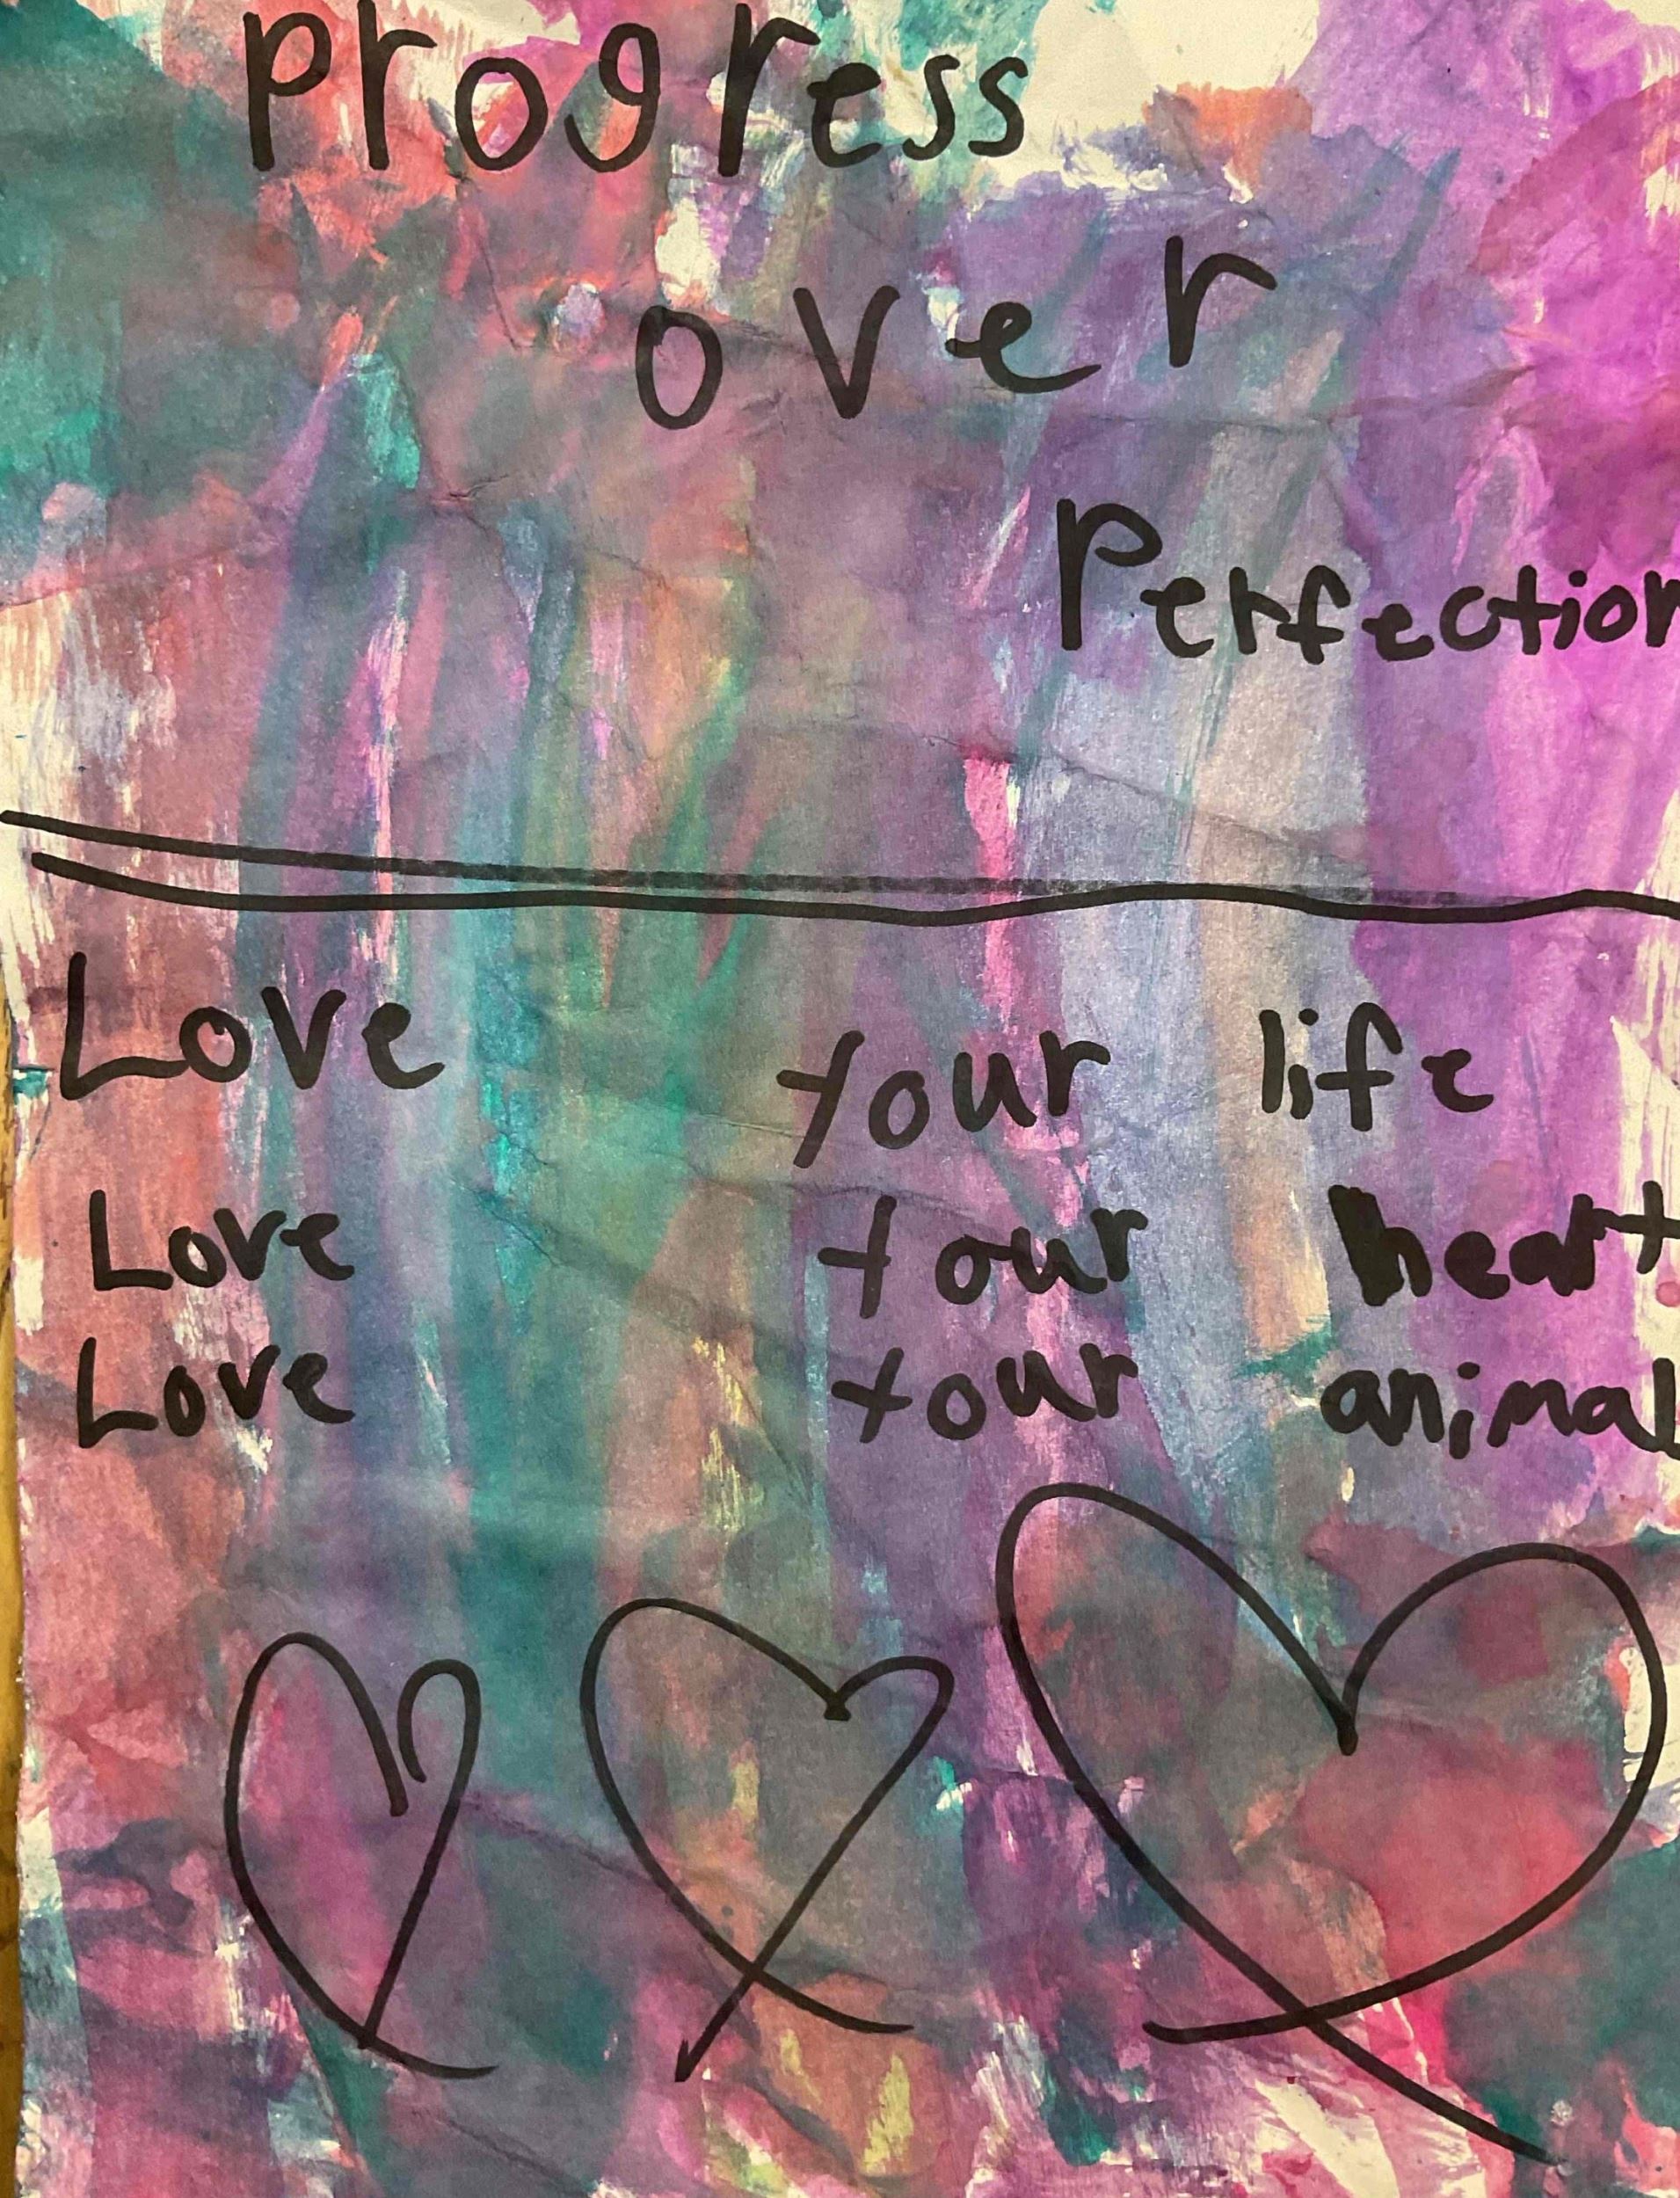 Progress
over
Perfection
Love your life
Love your heart
Love your animal